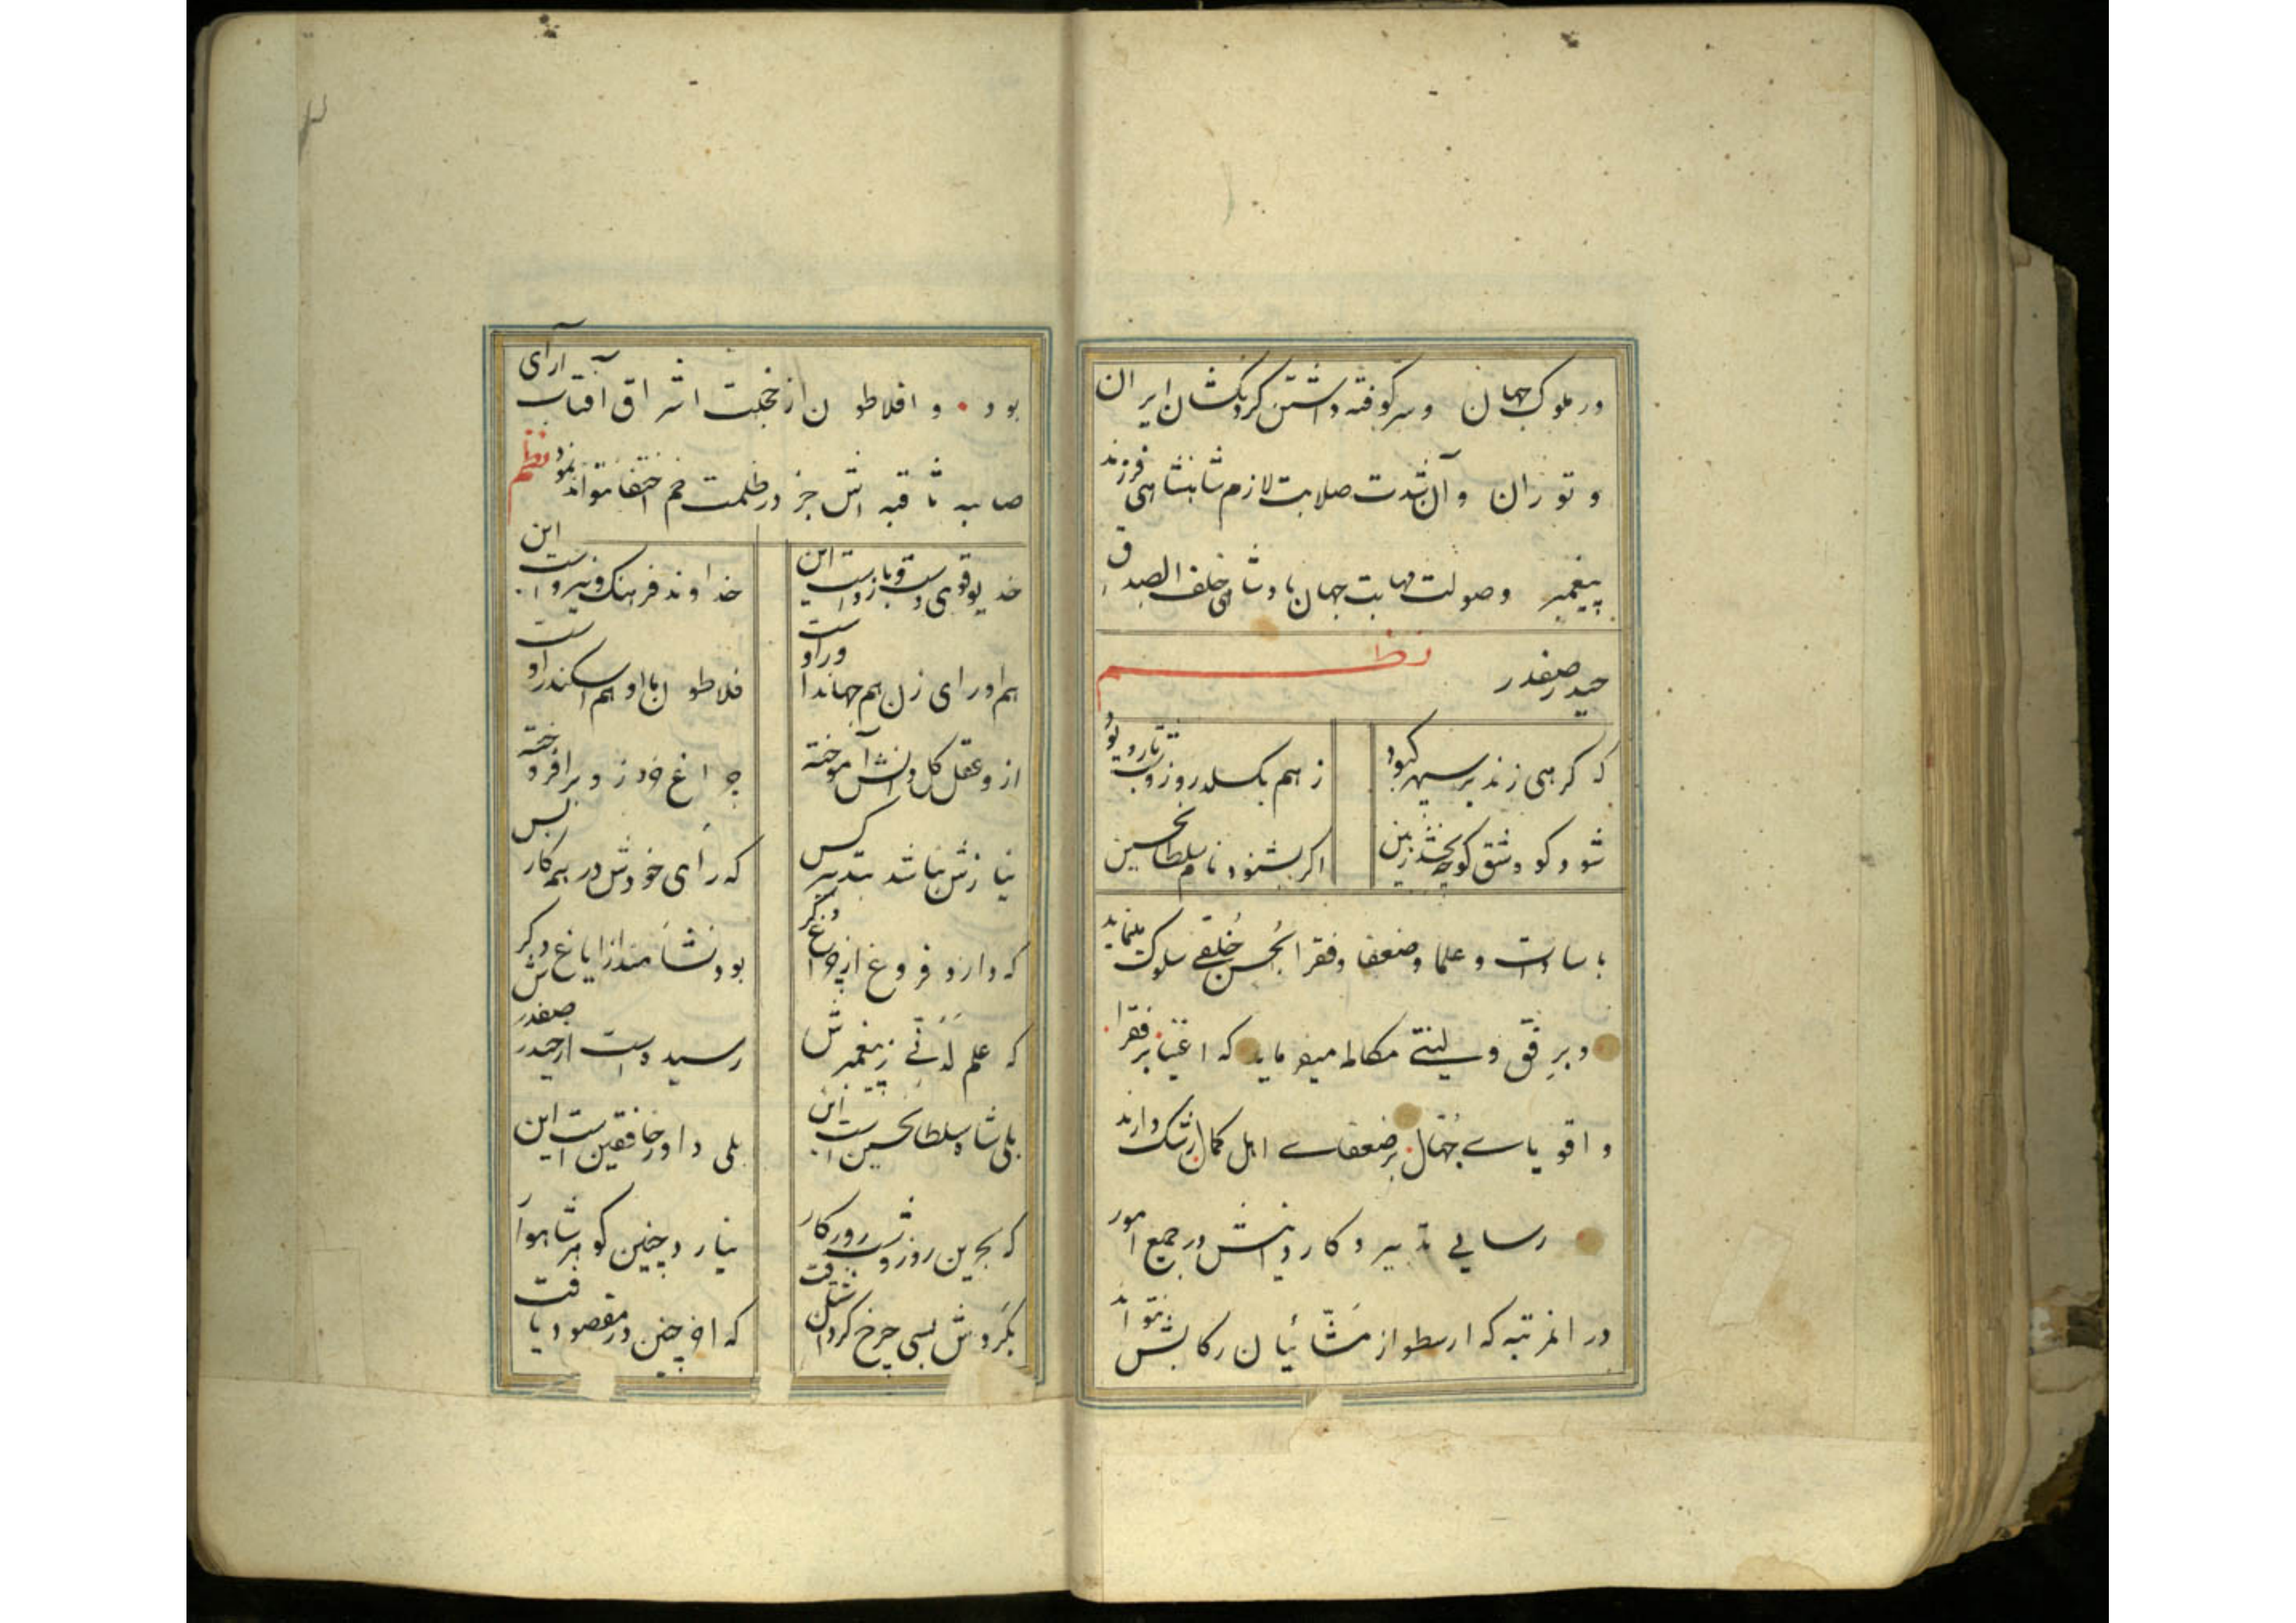 در ملوک جهان و سرکوفته داشتن گردنکشان ایران
و توران و آن شدت صلابت لازم شاهنشاهی فرزند
پیغمبر وصولت مهابت جهان پادشاهی خلف الصدق
حیدر صفدر نظم
که گر هی زند بر سپهر کبود ز هم بگسلد روز و شب تار و پود
شود کوه شق کوچه بخشد زمین اگر بشنود نام سلطانحسین
با سادات و علما و ضعفا و فقرا بحسن خلقی سلوک مینماید
و برفق و لینتی مکالمه میفرماید که اغنیا بر فقرا
و اقویای جهّال بر ضعفای اهل کمال رشک دارند
رسایی تدبیر و کاردانیش در جمیع امور
در انمرتبه که ارسطو از مشّائیان رکابش نتواند
بود و افلاطون از خجلت اشراق آفتاب آرای
صایبه ثاقبه اش جز در ظلمت خم اختفا نتواند نمود نظم
خدیو قوی دست و بازوست این خداوند فرهنگ و نیروست این
هم او رای زن هم جهاندار اوست فلاطون با او هم اسکندر اوست
ازو عقل کل دانش آموخته چراغ خود از نور برافروخته
نیازش نباشد بتدبیر کس که رای خودش در همه کار بس
که دارد فروغ از چراغ دگر بود نشأ مند از ایاغ دگر
که علم لدنّی ز پیغمبرش رسیدست از حیدر صفدرش
بلی شاه سلطانحسین است این بلی داور خافقین است این
که بحرین روز و شب روزگار نیارد چنین گوهر شاهوار
بگردش بسی چرخ گردان شتافت که اخر چنین در مقصود یافت